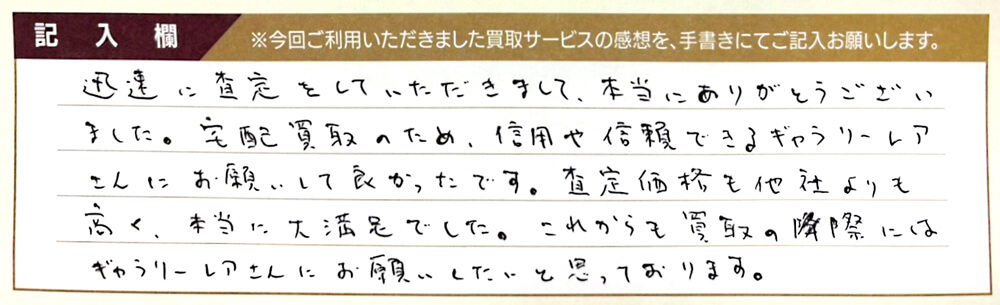 記入欄
※今回ご利用いただきました買取サービスの感想を、手書きにてご記入お願いします。
迅速に査定をしていただきまして、本当にありがとうござい
ました。宅配買取のため、信用や信頼できるギャラリーレア
さんにお願いして良かったです。査定価格も他社よりも
高く、本当に大満足でした。これからも買取の際には
ギャラリーレアさんにお願いしたいと思っております。